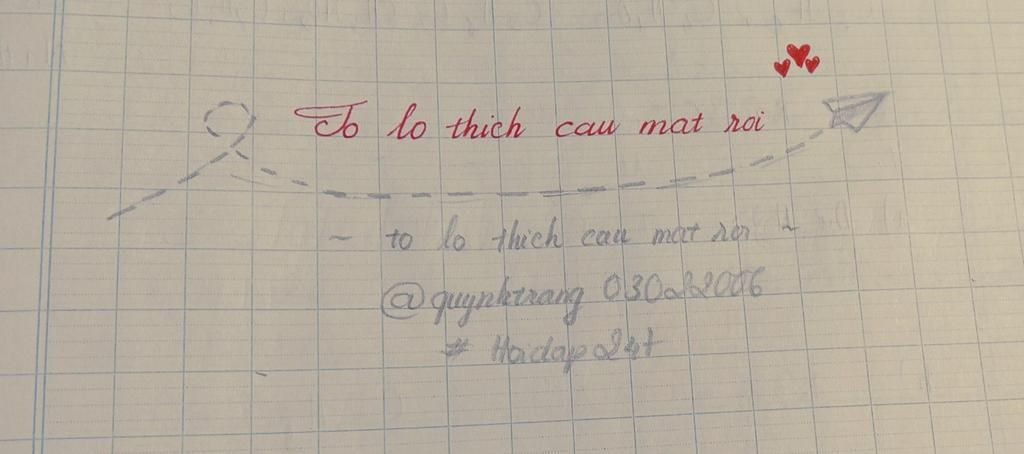 To lo thich cau mat roi
~ to lo thich cau mat roi ~
@quynhtrang 03022006
# Hoidap24t